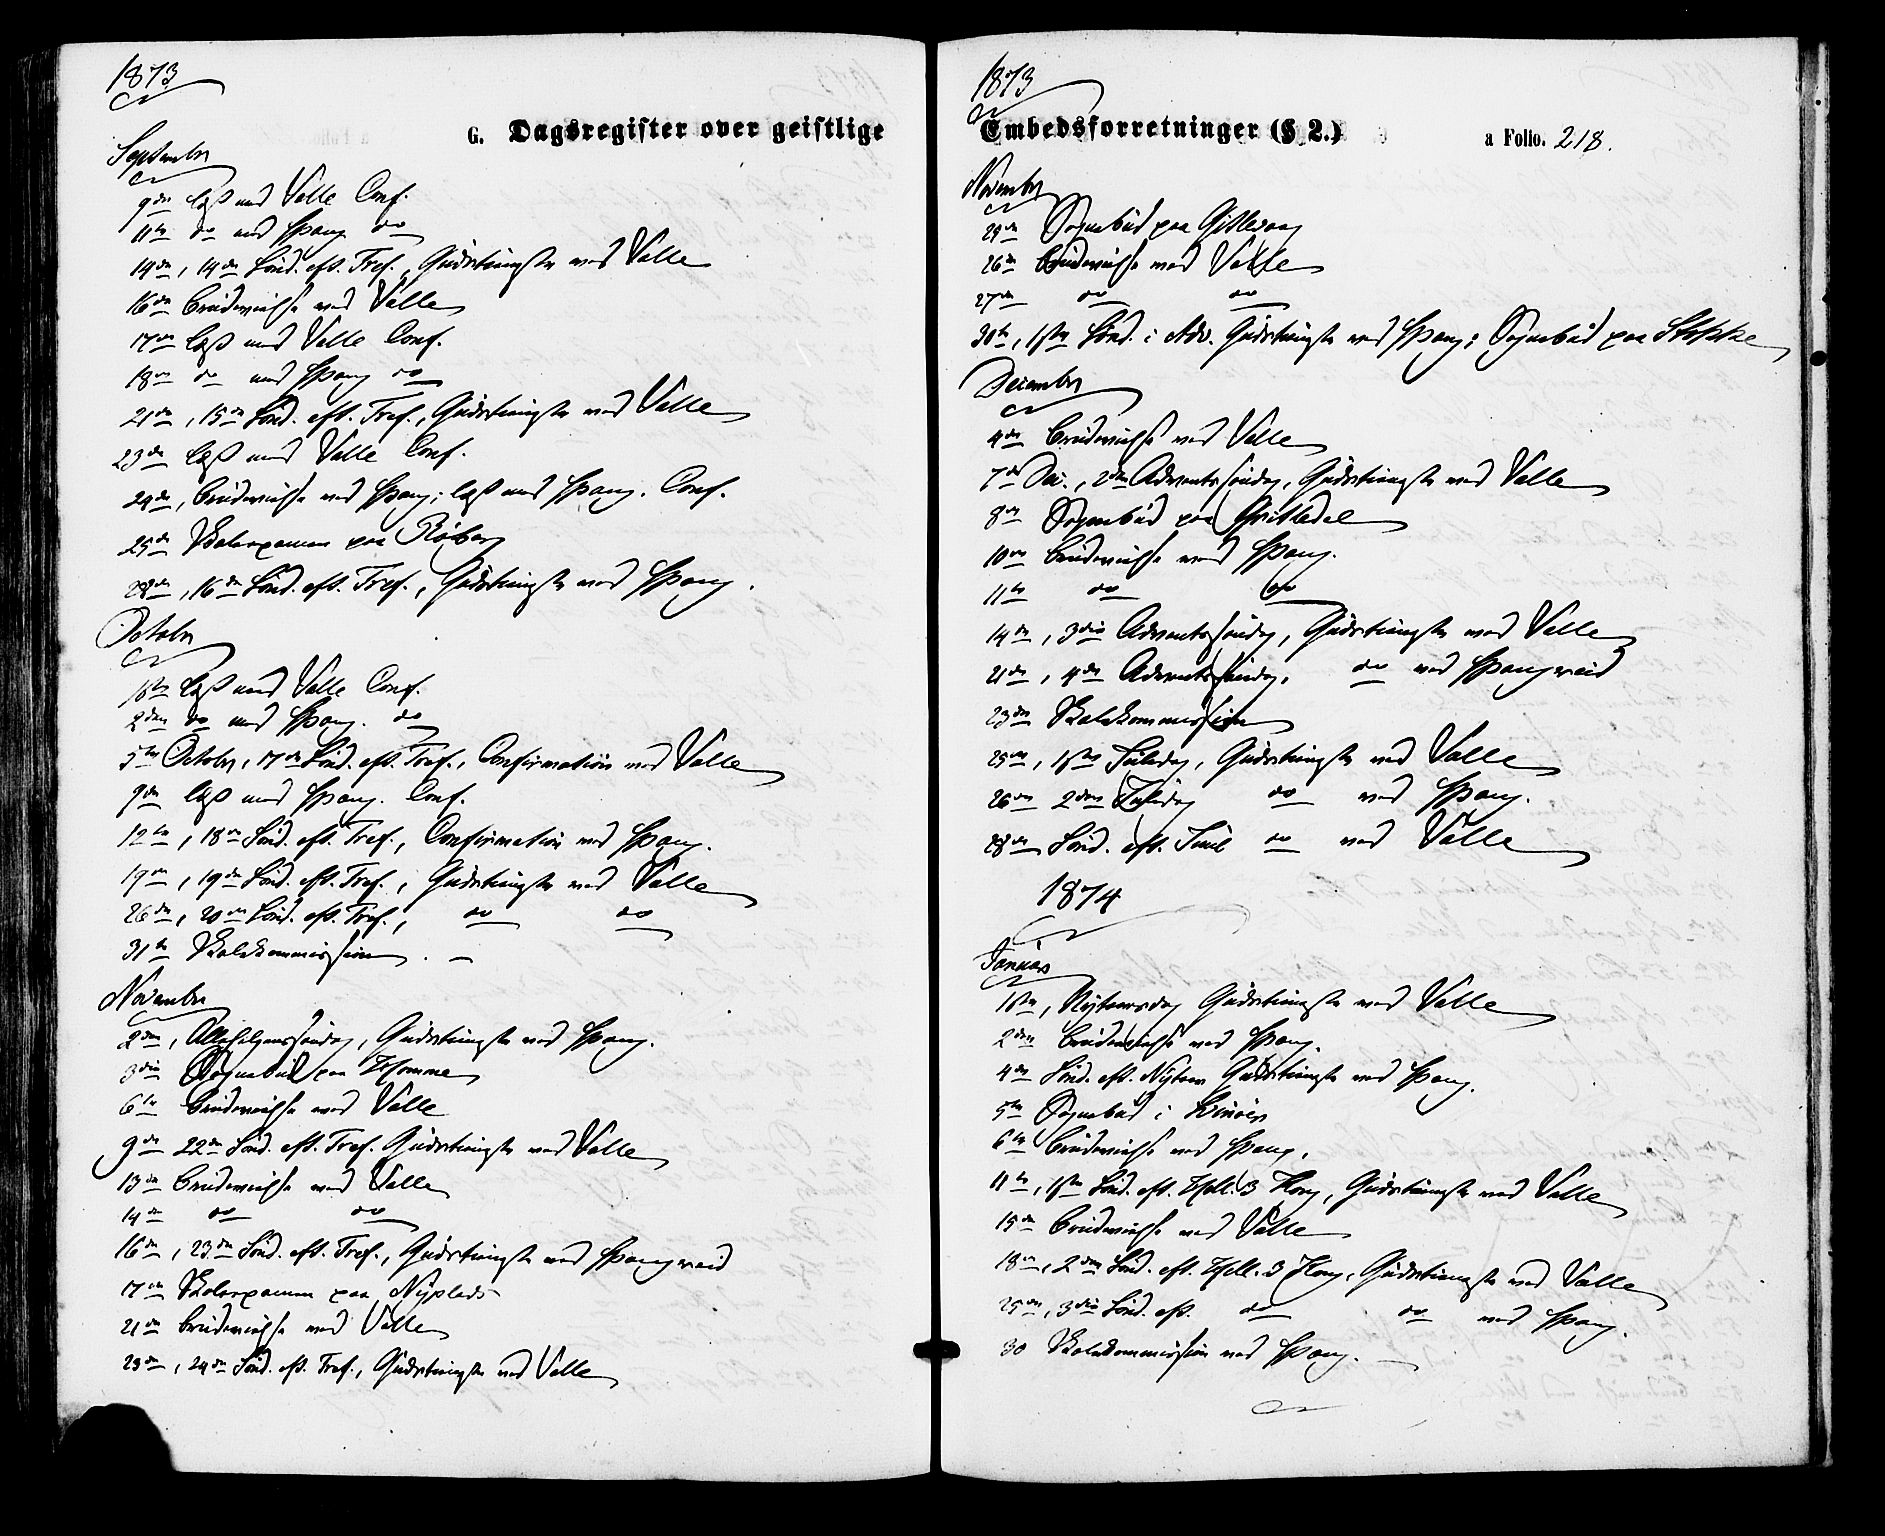 1873
G. Dagsregister over geistlige
September
9de læst med Valle Conf.
11te do med Spang. do
14de, 14de Sønd. eft. Tref., Gudstieneste ved Valle
16de Brudevielse ved Valle
17de læst med Valle Conf.
18de do med Spang. do
21de, 15de Sønd. eft. Tref., Gudstieneste ved Valle
23de læst med Valle Conf.
24de, Brudevielse ved Spang; læst med Spang. Conf.
25de Skoleexamen paa Røiberg
28de, 16de Sønd. eft. Tref., Gudstieneste ved Spang.
October
1ste læst med Valle Conf.
2den do med Spang. do
5te October, 17de Sønd. eft. Tref., Confirmation ved Valle
9de læst med Spang. Conf.
12te, 18de Sønd. eft. Tref., Confirmation ved Spang.
19de, 19de Sønd. eft. Tref., Gudstieneste ved Valle
26de, 20de Sønd. eft. Tref., do do
31te Skolekommission.
November
2den, Allehelgenssøndag, Gudstieneste ved Spang.
3die Sognebud paa Homme
6te Brudevielse ved Valle
9de 22de Sønd. eft. Tref. Gudstieneste ved Valle
13de Brudevielse ved Valle
14de do do
16de, 23de Sønd. eft. Tref., Gudstieneste ved Spangereid
17de Skoleexamen paa Nyplads
21de Brudevielse ved Valle
23de, 24de Sønd. eft. Tref., Gudstieneste ved Valle
1873
Embedsforretninger (§ 2.)
a Folio. 218.
November
24de Sognebud paa Gitlevaag
26de Brudevielse ved Valle
27de do do
30te, 1ste Sønd. i Adv. Gudstieneste ved Spang; Sognebud paa Stokke
December
4de Brudevielse ved Valle
7de Dec., 2den Adventssøndag, Gudstieneste ved Valle
8de Sognebud paa
10de Brudevielse ved Spang.
11te do do
14de, 3die Adventssøndag, Gudstieneste ved Valle
21de, 4de Adventssøndag, do ved Spangereid
23de Skolekommission
25de, 1ste Juledag, Gudstieneste ved Valle
26de 2den Juledag do ved Spang.
28de Sønd. eft. Juul do ved Valle
1874
Januar
1ste, Nytaarsdag Gudstieneste ved Valle
2den Brudevielse ved Spang.
4de Sønd. eft. Nytaar Gudstieneste ved Spang.
5te Sognebud i
6te Brudevielse ved Spang.
11te, 1ste Sønd. eft. Hell. 3 Kong., Gudstieneste ved Valle
15de Brudevielse ved Valle
18de, 2den Sønd. eft. Hell. 3 Kong., Gudstieneste ved Valle
25de, 3die Sønd. eft. do do ved Spang.
30 Skolekommission ved Spang.